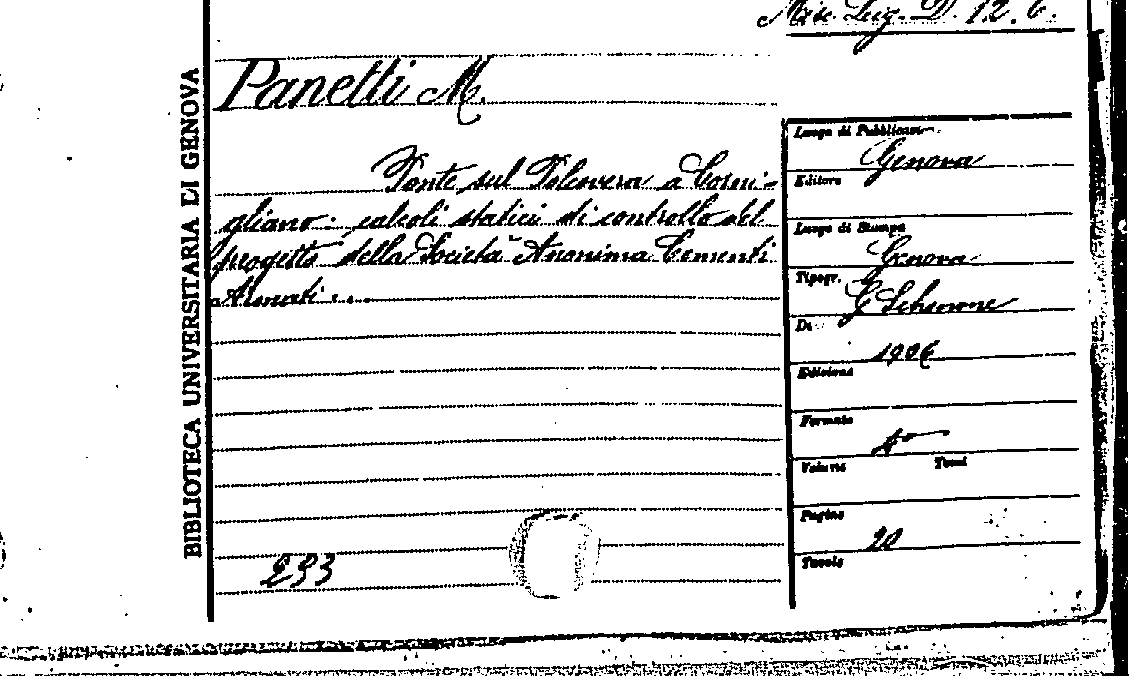 Misc. Lig. D. 12. 6.
BIBLIOTECA UNIVERSITARIA DI GENOVA
Panetti M.
Ponte sul Polcevera a Corni-
gliano: calcoli statici di controllo del
progetto della Società Anonima Cementi
Armati...
293
Luogo di Pubblicaz.
Genova
Editore
Luogo di Stampa
Genova
Tipogr.
G Schenone
Di
1906
Edizione
Formato
4°
Volume Tomi
Pagine
20
Tavole